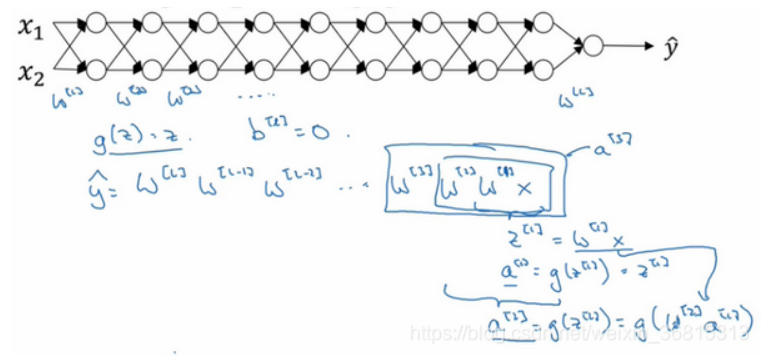 x₁
x₂ ŷ
w^[1] w^[2] w^[3] ..... w^[L]
g(z) = z. b^[l] = 0.
ŷ = w^[L] w^[L-1] w^[L-2] ... w^[3] w^[2] w^[1] x a^[3]
z^[1] = w^[1] x
a^[1] = g(z^[1]) = z^[1]
a^[2] = g(z^[2]) = g(w^[2] a^[1])
https://blog.csdn.net/weixin_36815313